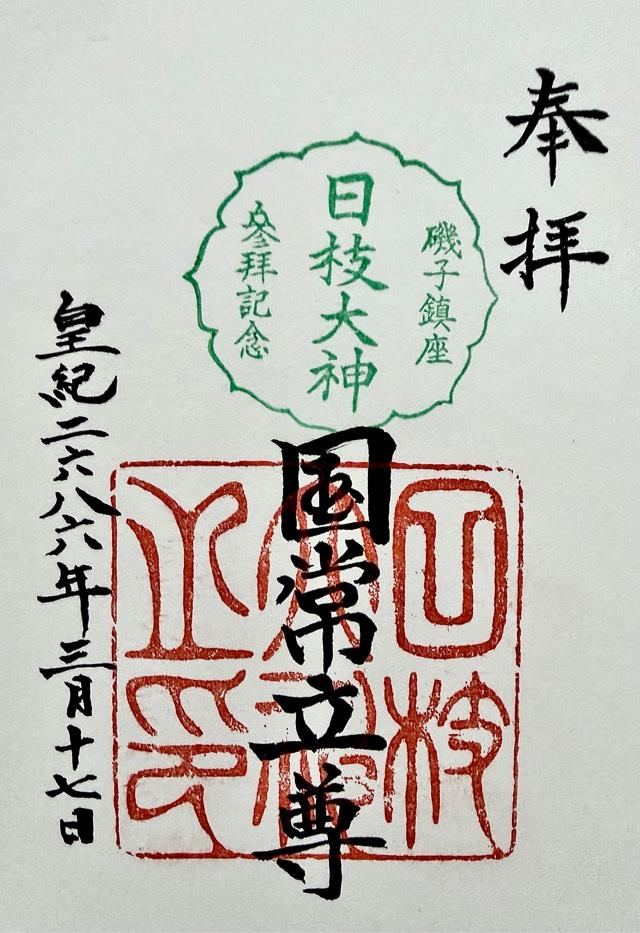 奉拝
磯子鎮座
日枝大神
参拜記念
国常立尊
日枝大神之印
皇紀二六八六年三月十七日